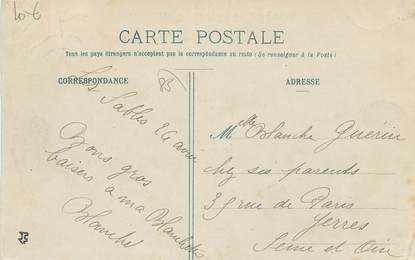 10 €
CARTE POSTALE
Tous les pays étrangers n'acceptent pas la correspondance au recto (Se renseigner à la Poste)
CORRESPONDANCE
ADRESSE
85
Les Sables 26 aout
Bons gros
baisers à ma Blanchette
Blanche
Melle Blanche Guérin
chez ses parents
39 rue de Paris
Yerres
Seine et Oise